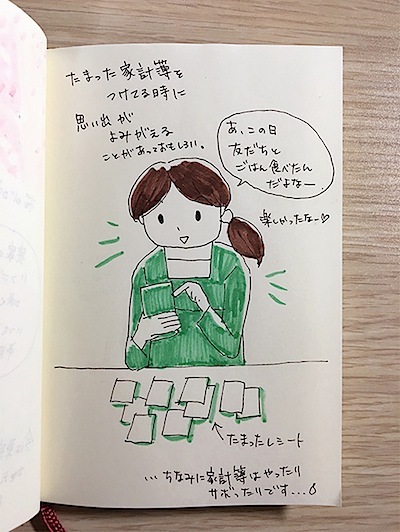 たまった家計簿を
つけてる時に
思い出が
よみがえる
ことがあっておもしろい。
あ、この日
友だちと
ごはん食べたん
だよなー
楽しかったなー♡
たまったレシート
...ちなみに家計簿はやったり
サボったりです...